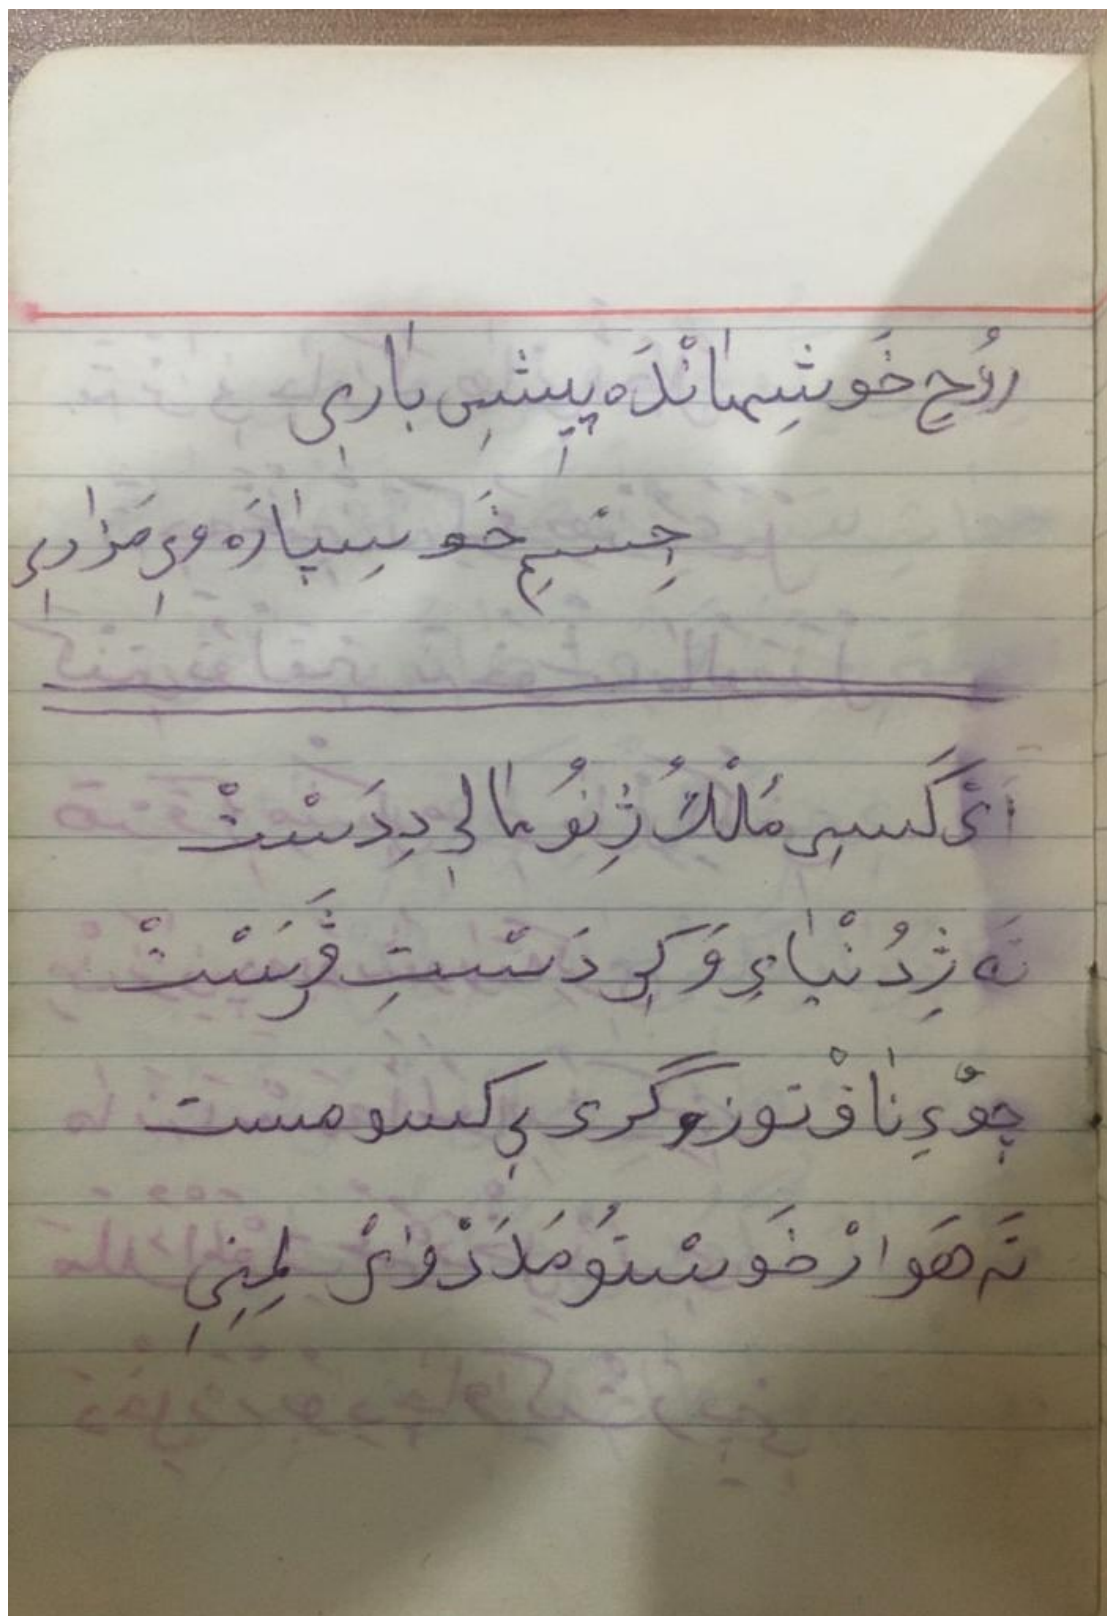 رُوُحِ خَو شِهانْدَه پِیشِی بارِی
جِسْمِ خَو سِپارَه وِی مَزارِی
اَیْ کَسِی مُلْکُ ژِنُو مالی دِدَسْتْ
تَه ژِدُنْیایِ وَکِی دَسْتِ ڤَرَسْتْ
چوُّیِ ناڤْ توزو گری بی کسو مست
تَه هَوارْ خَوسْتو مَدَدْ وایْ لِمِنِی